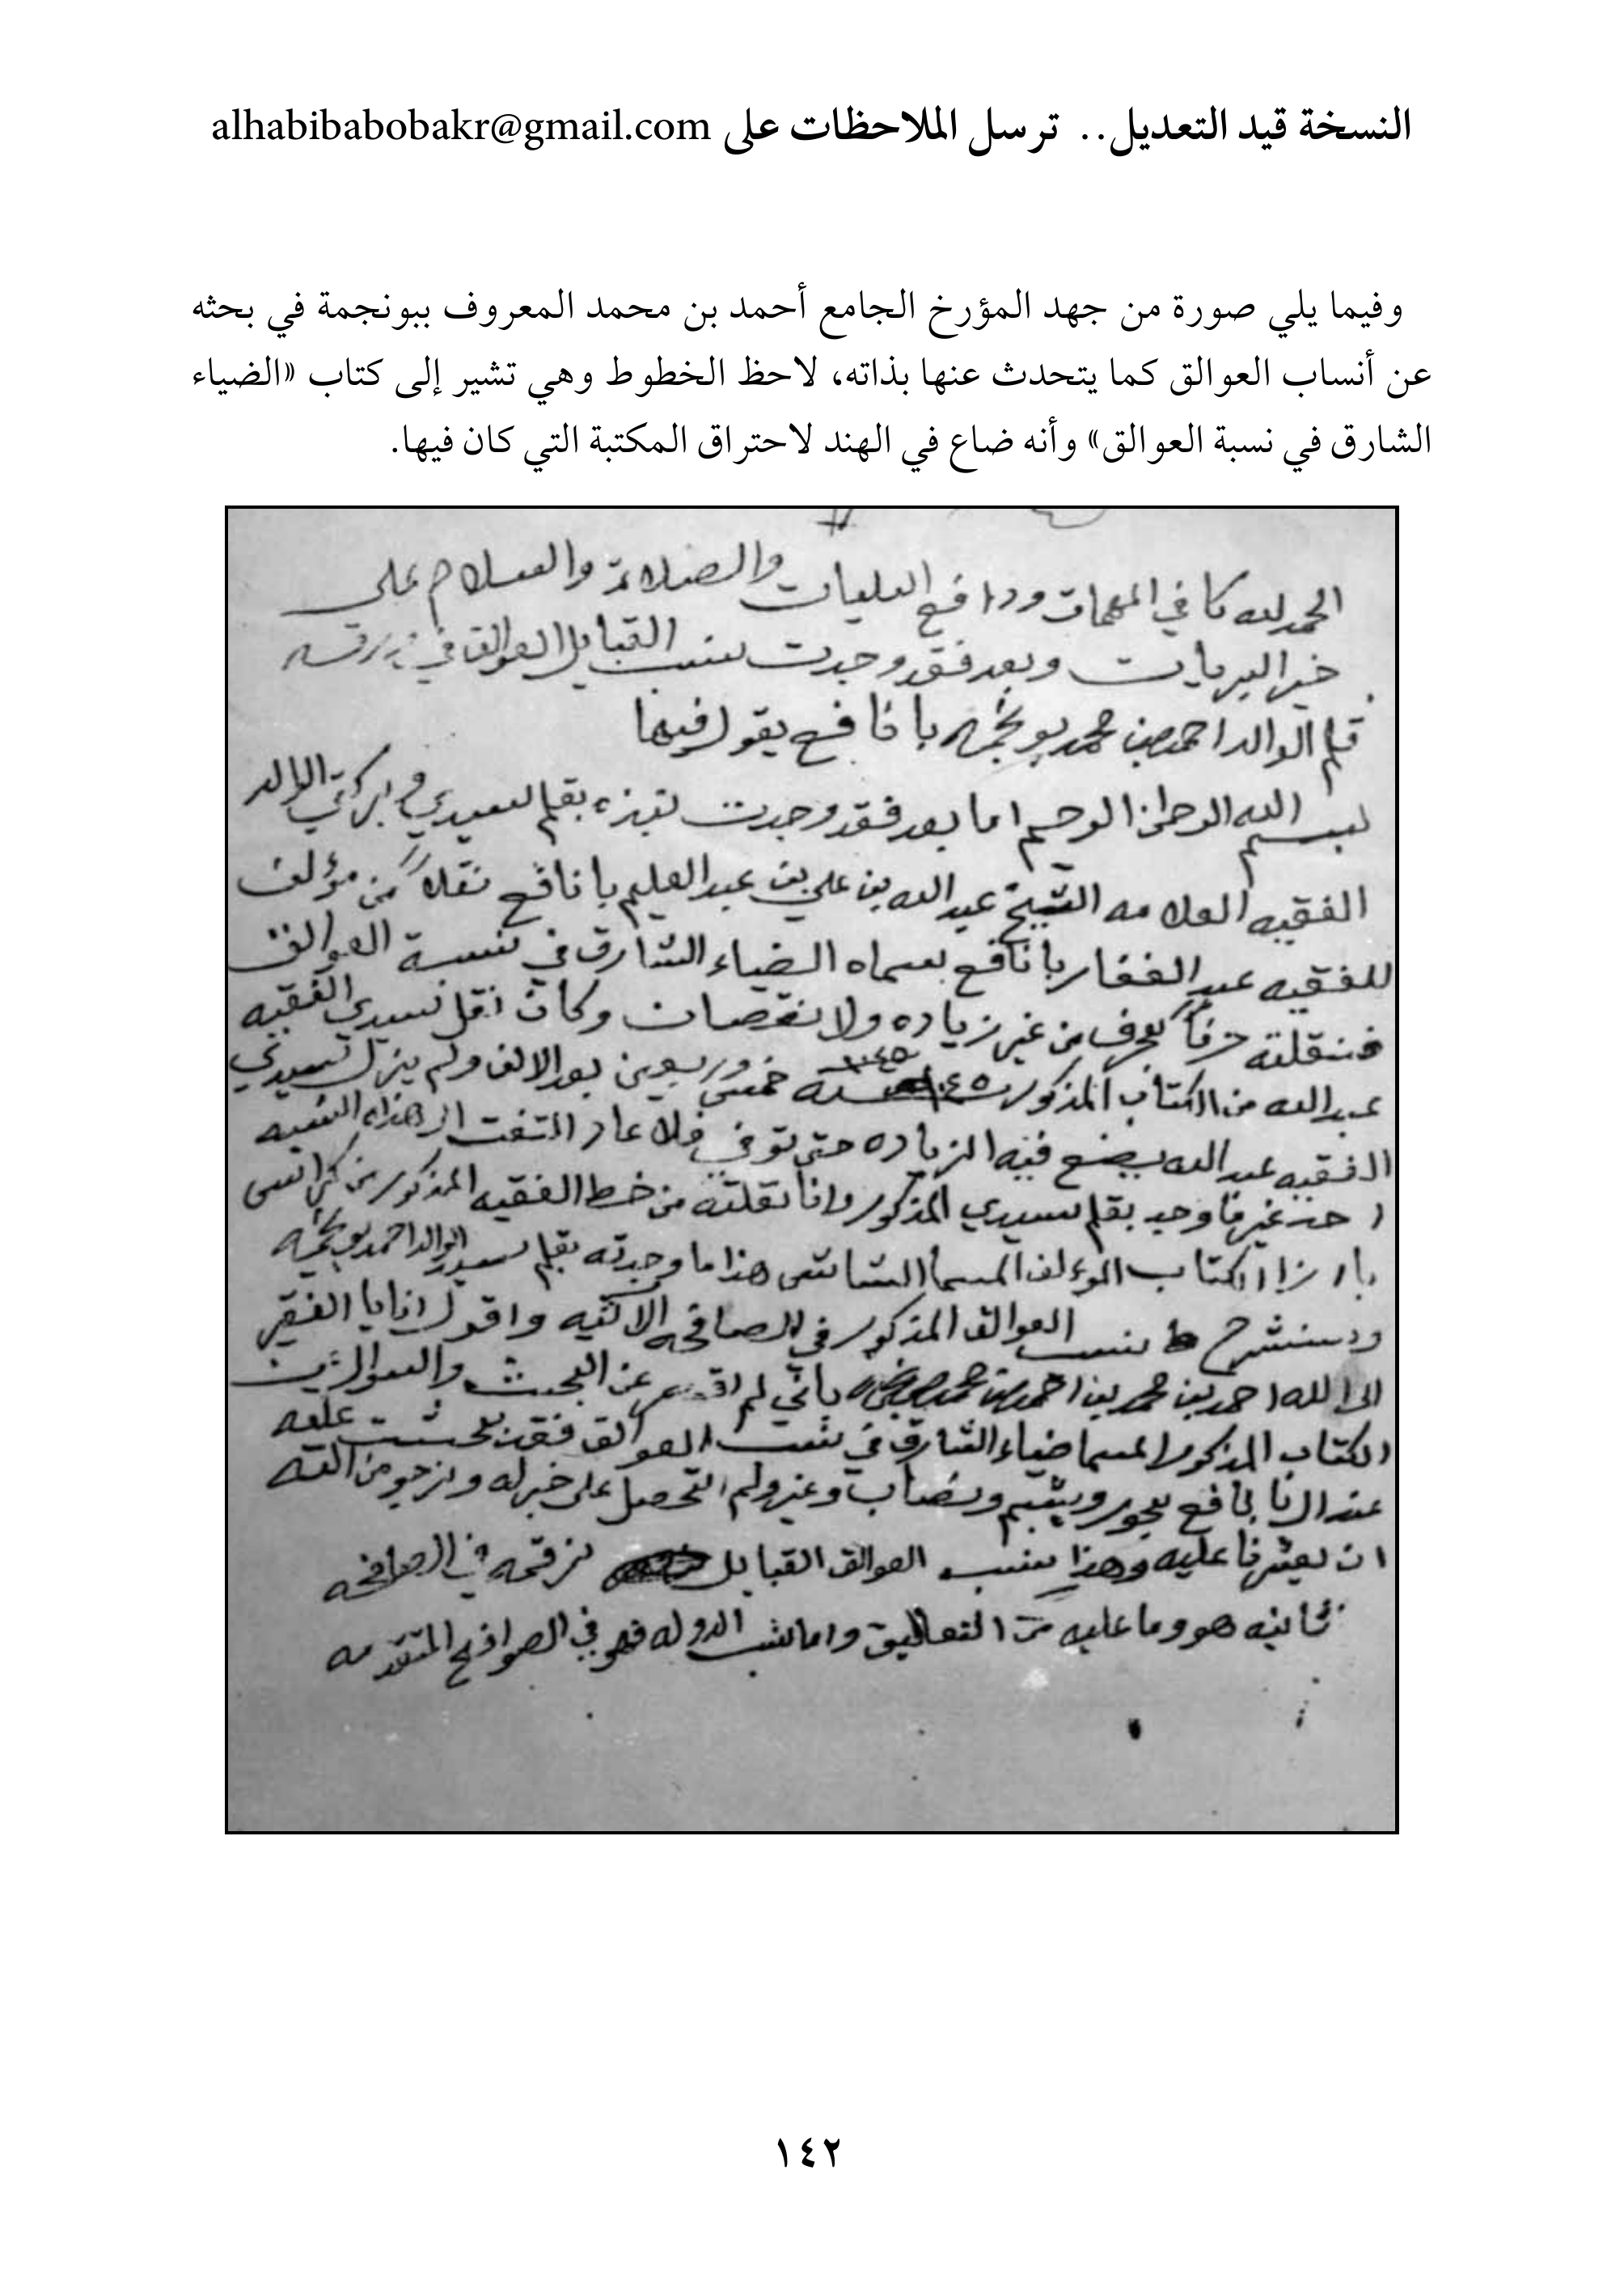 النسخة قيد التعديل.. ترسل الملاحظات على alhabibabobakr@gmail.com
وفيما يلي صورة من جهد المؤرخ الجامع أحمد بن محمد المعروف ببونجمة في بحثه
عن أنساب العوالق كما يتحدث عنها بذاته، لاحظ الخطوط وهي تشير إلى كتاب «الضياء
الشارق في نسبة العوالق» وأنه ضاع في الهند لاحتراق المكتبة التي كان فيها.
الحمد لله كافي المهمات ودافع البليات والصلاة والسلام على
خير البريات وبعد فقد وجدت نسب القبايل العوالق في
قلم الوالد احمد بن محمد بونجمه بانافع يقول فيها
بسم الله الرحمن الرحيم اما بعد فقد وجدت نبذه بقلم سيدي وبركتي الوالد
الفقيه العلامه الشيخ عبد الله بن علي بن عبد العليم بانافع نقلاً من مؤلف
للفقيه عبد الغفار بانافع بسماه الضياء الشارق في نسبة العوالق
فنقلته حرفاً بحرف من غير زياده ولا نقصان وكان نقل سيدي الفقيه
عبد الله من الكتاب المذكور سنة ١٠٤٥ خمس وربعين بعد الالف ولم يزل سيدي
الفقيه عبد الله يضع فيه الزياده حتى توفي فلا عاد التفت الى هذا النسبه
احد غير ما وجد بقلم سيدي المذكور وانا نقلته من خط الفقيه المذكور من
الكتاب المؤلف المسما هذا ما وجدته بقلم سيدي الوالد احمد بونجمه
وسنشرح نسب العوالق المذكور في الصافحه الاتيه واقول انا يا الفقير
الى الله احمد بن محمد بن احمد بن محمد بونجمه باني لم عن البحث والسوال من
الكتاب المذكور المسما ضياء الشارق في نسب العوالق فقد بحثت عليه
عند ال بانافع بجور ويشبم ونصاب وغير ولم اتحصل على خبر له ونرجو من الله
ان يعثرنا عليه وهذا نسب العوالق القبايل نرقمه في الصافحه
ثانيه هو وما عليه من التعاليق واما نسب الدوله فهو في الصوافح المتقدمه
١٤٢